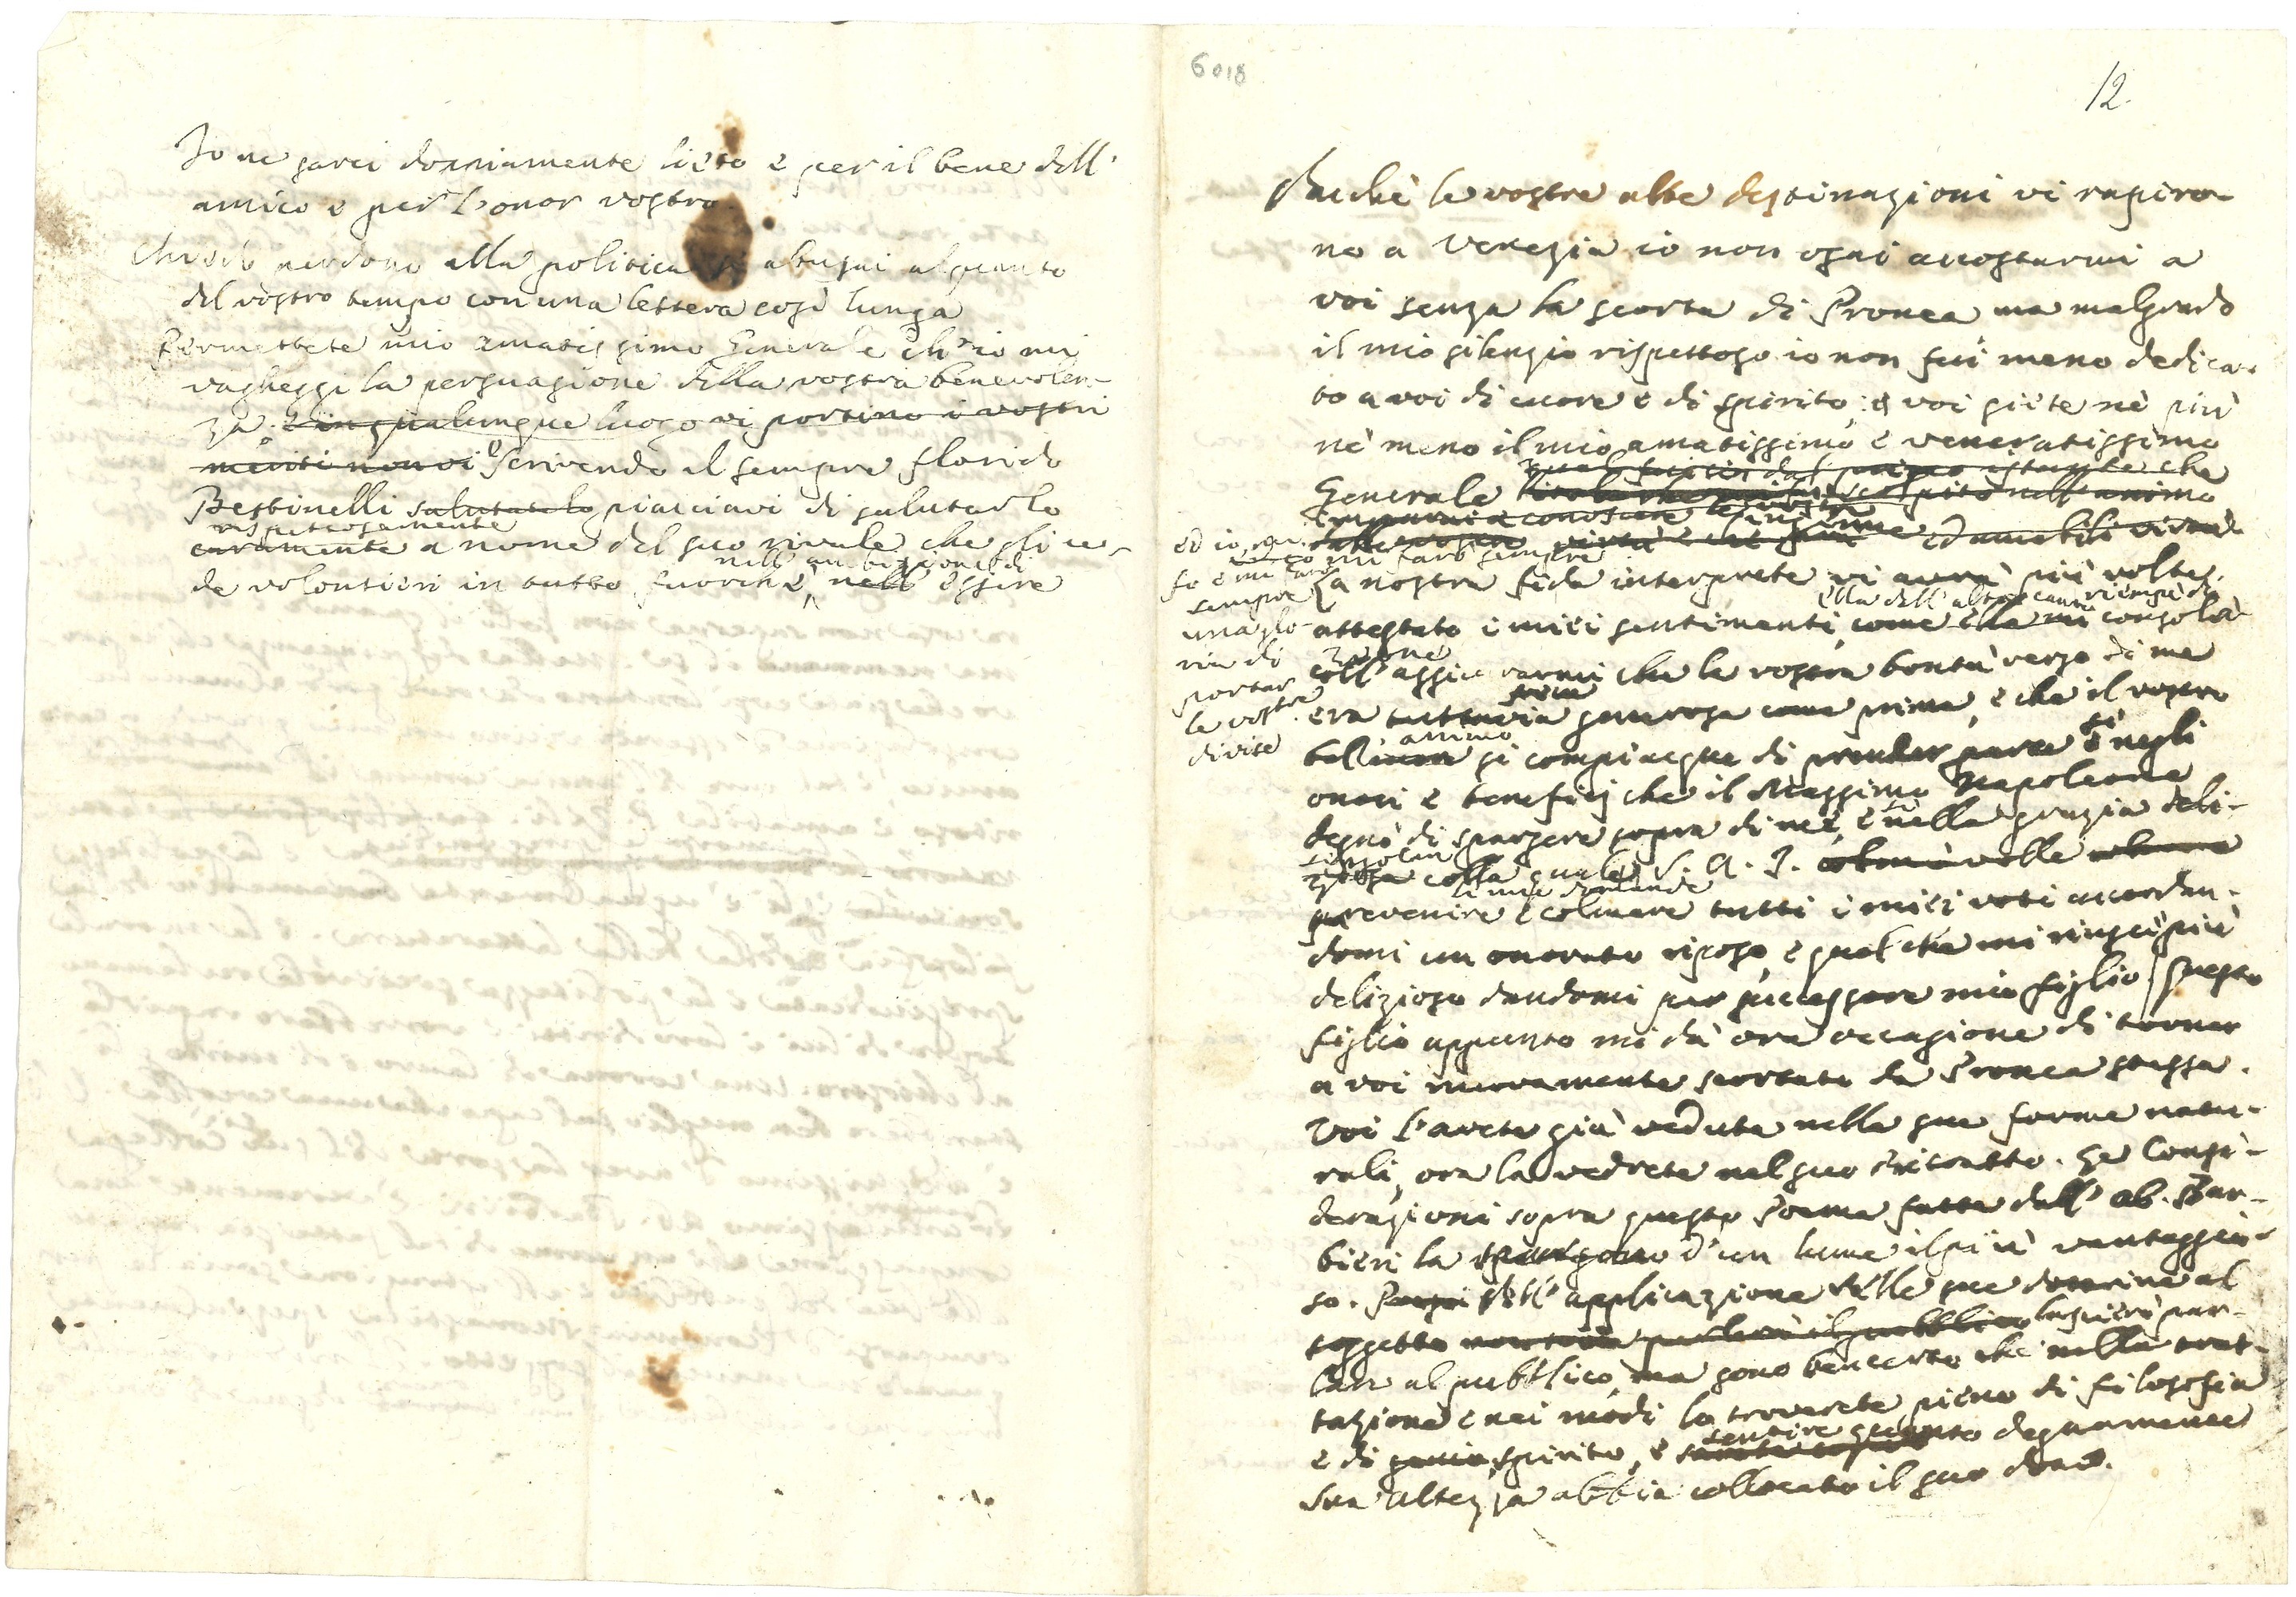 Io ne sarei doppiamente lieto e per il bene dell'
amico e per l'onor vostro
Chiedo perdono alla politica se abusai alquanto
del vostro tempo con una lettera così lunga
Permettete mio amatissimo Generale ch'io mi
vagheggi la persuasione della vostra benevolen-
za. e in qualunque luogo vi portino i vostri
menti non vi Scrivendo al sempre florido
Bettinelli salutatelo piacciavi di salutarlo
rispettosamente
caramente a nome del suo rivale che gli ce-
nell' ambizione di
de volontieri in tutto fuorchè nell' essere
6018
12.
Dacchè le vostre alte destinazioni vi rapiro-
no a Venezia io non osai accostarmi a
voi senza la scorta di Pronea ma malgrado
il mio silenzio rispettoso io non fui meno dedica-
to a voi di cuore e di spirito, e voi siete nè più
nè meno il mio amatissimo e veneratissimo
dal primo istante che
Generale nell'animo
imparai a conoscere le ed amabili virtù
ed io
mi farò sempre
fo e mi farò
sempre
una glo-
ria di
portar
le vostre
divise
La nostra fida interprete vi avrà più volte
ella dall' altro canto riempì di
attestato i miei sentimenti, come ella mi consola-
zione
coll' assicurarmi che la vostra bontà verso di me
era tuttavia generosa come prima, e che il vostro
animo
bell' si compiacque di prender parte sì negli
onori e benefizj che il Massimo Napoleone
degnò di spargere sopra di me, e nella grazia deli-
singolar
ziosa colla quale S. A. I. volle
le mie domande
prevenire e colmare tutti i miei voti accordan-
domi un onorato riposo, e quel che mi riuscì più
delizioso dandomi per successore mio figlio. Questo
figlio appunto mi dà ora occasione di tornar
a voi nuovamente scortato da Pronea stessa.
Voi l'avete già veduta nelle sue forme natu-
rali, ora la vedrete nel suo ritratto. Le Consi-
derazioni sopra questo Poema fatte dall' ab. Bar-
bieri la d'un lume il più vantaggio-
so. Dell' applicazione delle sue dottrine al
soggetto non parlerà il pubblico lascierò par-
lare al pubblico, ma sono ben certo che nella trat-
tazione e nei modi lo troverete pieno di filosofia
e di genio spirito, e sentire quanto degnamente
Sua Altezza abbia collocato il suo dono.